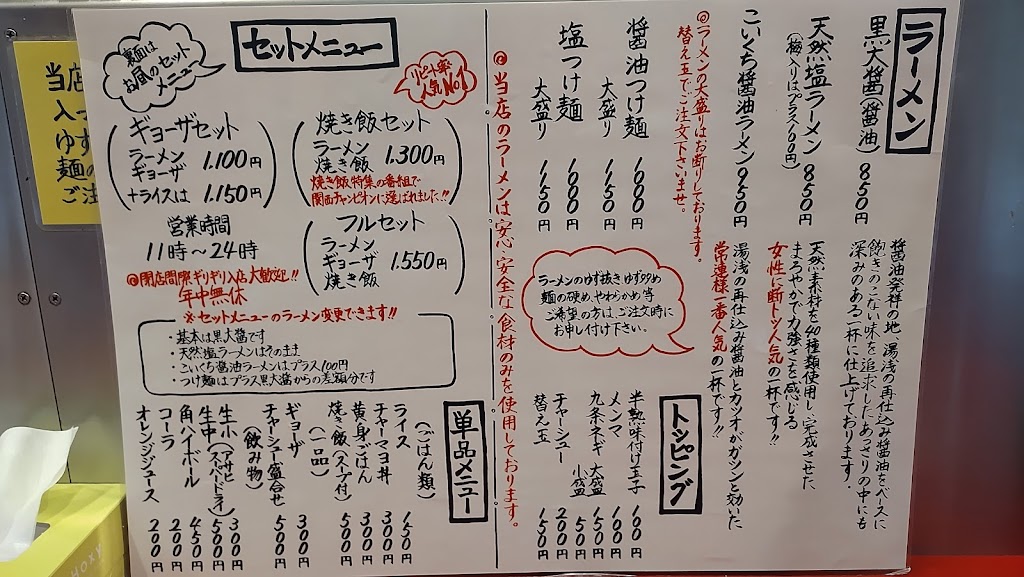 ラーメン
黒大醤(醤油) 850円
天然塩ラーメン 850円
(梅入りはプラス100円)
こいくち醤油ラーメン 950円
◎ラーメンの大盛りはお断りしております。
替え玉でご注文下さいませ。
醤油つけ麺 1000円
大盛り 1150円
塩つけ麺 1000円
大盛り 1150円
醤油発祥の地、湯浅の再仕込み醤油をベースに
飽きのこない味を追求したあっさりの中にも
深みのある一杯に仕上げております。
天然素材を40種類使用し、完成させた
まろやかで力強さを感じる
女性に断トツ人気の一杯です!!
湯浅の再仕込み醤油とカツオがガツンと効いた
常連様一番人気の一杯です!!
ラーメンのゆず抜き ゆず多め
麺の硬め、やわらかめ等
ご希望の方は、ご注文時に
お申し付け下さい。
トッピング
半熟味付け玉子 100円
メンマ 100円
九条ネギ 大盛 150円
小盛 50円
チャーシュー 200円
替え玉 150円
◎当店のラーメンは安心・安全な食材のみを使用しております。
セットメニュー
裏面は
お昼のセット
メニュー
リピート率
人気No1
ギョーザセット
ラーメン
ギョーザ 1.100円
+ライスは 1.150円
焼き飯セット
ラーメン
焼き飯 1.300円
焼き飯特集の番組で
関西チャンピオンに選ばれました!!
営業時間
11時〜24時
◎閉店間際ギリギリ入店大歓迎!!
年中無休
フルセット
ラーメン
ギョーザ
焼き飯 1.550円
※セットメニューのラーメン変更できます!!
・基本は黒大醤です
・天然塩ラーメンはそのまま
・こいくち醤油ラーメンはプラス100円
・つけ麺はプラス黒大醤からの差額分です
単品メニュー
(ごはん類)
ライス 150円
チャーマヨ丼 300円
黄身ごはん 300円
焼き飯(スープ付) 500円
(一品)
ギョーザ 300円
チャーシュー盛合せ 500円
(飲み物)
生小(アサヒ 300円
生中(スーパードライ) 500円
角ハイボール 450円
コーラ 200円
オレンジジュース 200円
当店
入っ
ゆず
麺の
ご注
hoxy